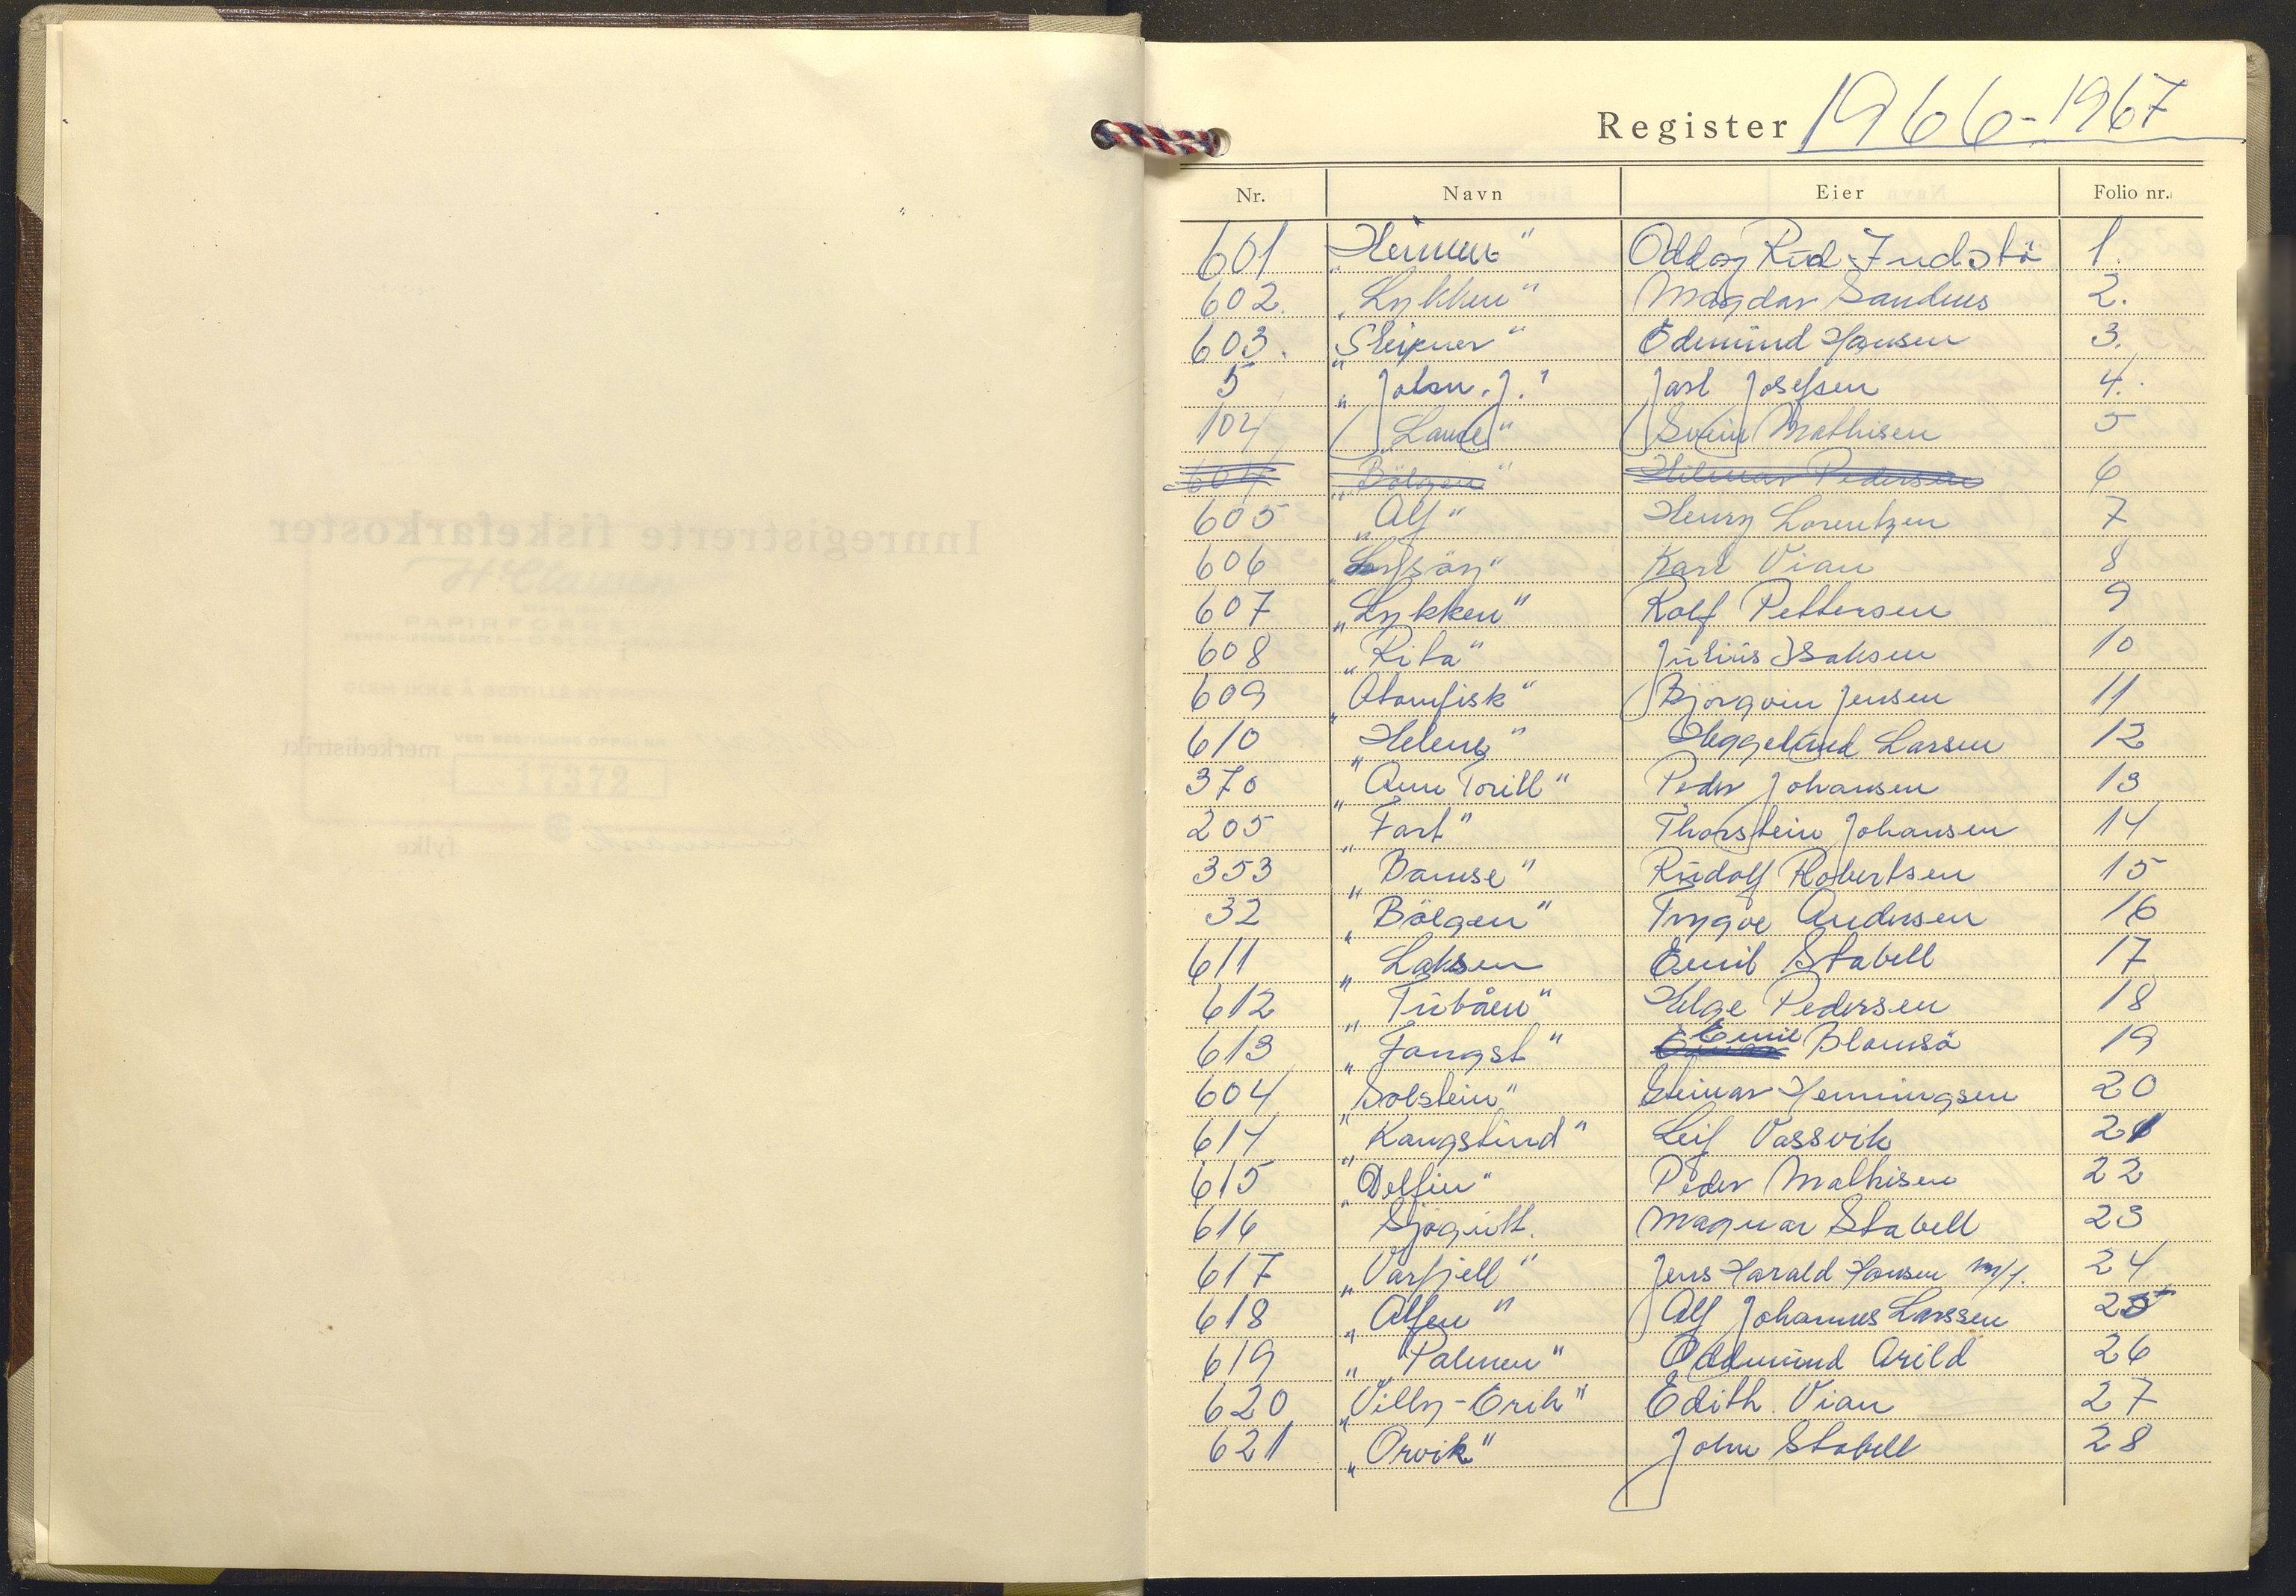 Register 1966-1967
Nr. Navn Eier Folio nr.
601 „Heimen" Oddog Rud 1.
602. „Lykken" Magdar Sandnes 2.
603. „Sleipner" Edmund Hansen 3.
5 „John. J." Jarl Josefsen 4.
104 „Laure" Svein Mathisen 5
604 „Bölgen" Hilmar Pedersen 6
605 „Alf" Henry Lorentzen 7
606 Karl Vian 8
607 „Lykken" Rolf Pettersen 9
608 „Rita" Julius Isaksen 10
609 „Atomfisk" Björgvin Jensen 11
610 „Helene" Heggelund Larsen 12
370 „Ann Torill" Peder Johansen 13
205 „Fart" Thorstein Johansen 14
353 „Bamse" Rudolf Robertsen 15
32 „Bölgen" Trygve Andersen 16
611 „Laksen Emil Stabell 17
612 „Tubåen" Helge Pedersen 18
613 „Fangst" Emil Blomsö 19
604 „Solstein" Steinar Henningsen 20
614 „Kangstind" Leif Vassvik 21
615 „Delfin" Peder Mathisen 22
616 Sjögutt. Magnar Stabell 23
617 „Varfjell" Jens Harald Hansen m/f. 24
618 „Alfen" Alf Johannes Larssen 25
619 „Palmen" Oddmund Arild 26
620 „Villy-Erik" Edith Vian 27
621 „Orvik" John Stabell 28